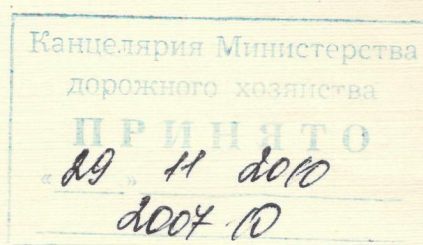 Канцелярия Министерства
дорожного хозяйства
ПРИНЯТО
«29» 11 2010
2007.10